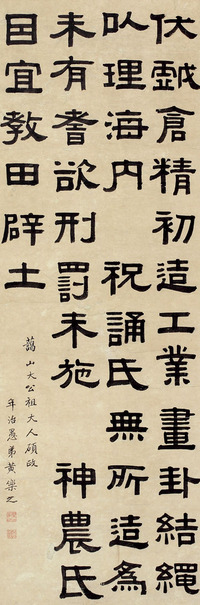 伏戲倉精初造工業畫卦結繩
以理海内 祝誦氏無所造為
未有耆欲刑罰未施 神農氏
因宜教田辟土
藹山大公祖大人碩政
年治愚弟黄樂之